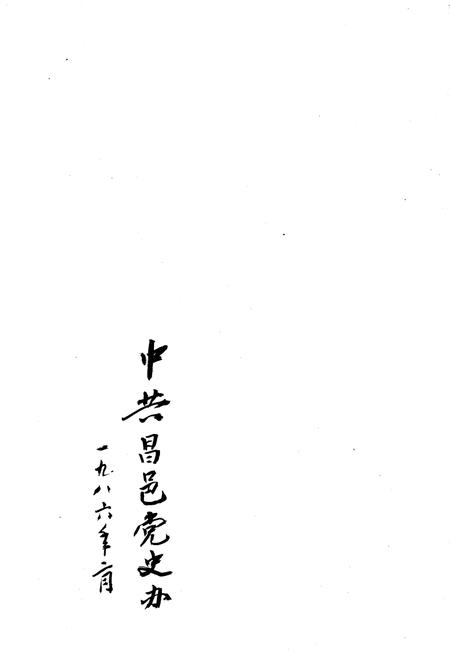 中共昌邑党史办
一九八六年二月